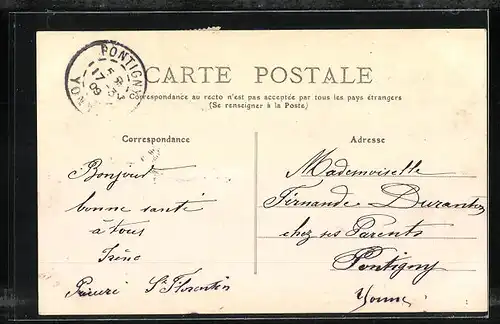 PONTIGNY
YONNE
17
09
CARTE POSTALE
La Correspondance au recto n'est pas acceptée par tous les pays étrangers
(Se renseigner à la Poste)
Correspondance
Bonjour
bonne santé
à tous
Irène
St Florentin
Adresse
Mademoiselle
Fernande Duranton
chez ses Parents
Pontigny
Yonne